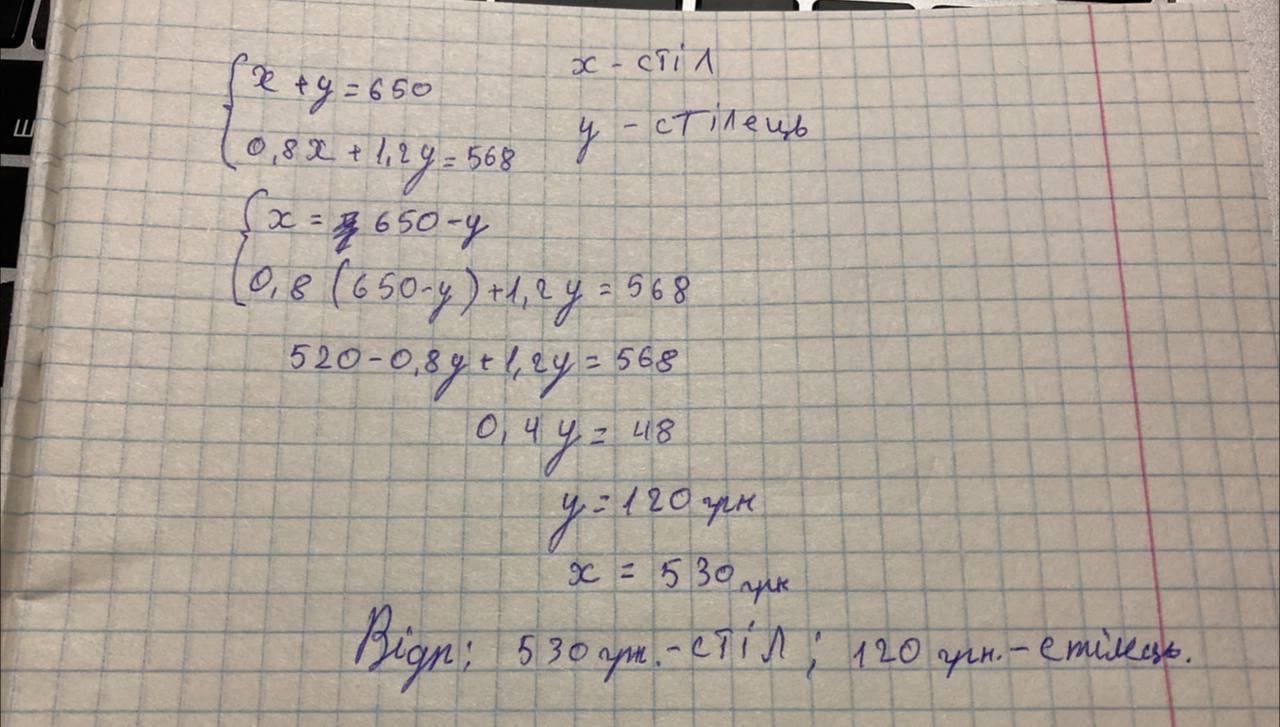 x + y = 650
x - стіл
0,8x + 1,2y = 568
y - стілець
x = 650 - y
0,8 (650-y) + 1,2y = 568
520 - 0,8y + 1,2y = 568
0,4y = 48
y = 120 грн
x = 530 грн
Відп: 530 грн. - стіл ; 120 грн. - стілець.
Ш